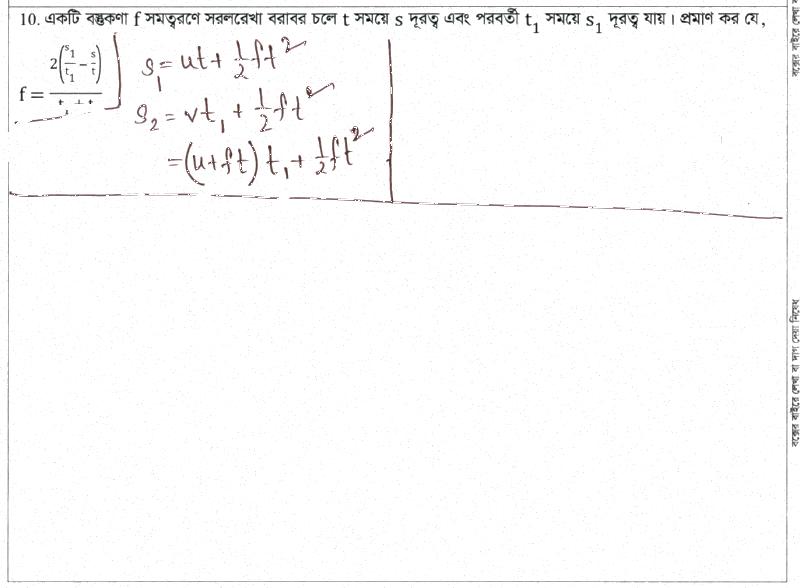 10. একটি বস্তুকণা f সমত্বরণে সরলরেখা বরাবর চলে t সময়ে s দূরত্ব এবং পরবর্তী t₁ সময়ে s₁ দূরত্ব যায়। প্রমাণ কর যে,
f = 2(s₁/t₁ − s/t)
s₁ = ut + ½ft²
s₂ = vt₁ + ½ft²
= (u+ft) t₁ + ½ft²
বক্সের বাইরে লেখা বা দাগ দেয়া নিষেধ